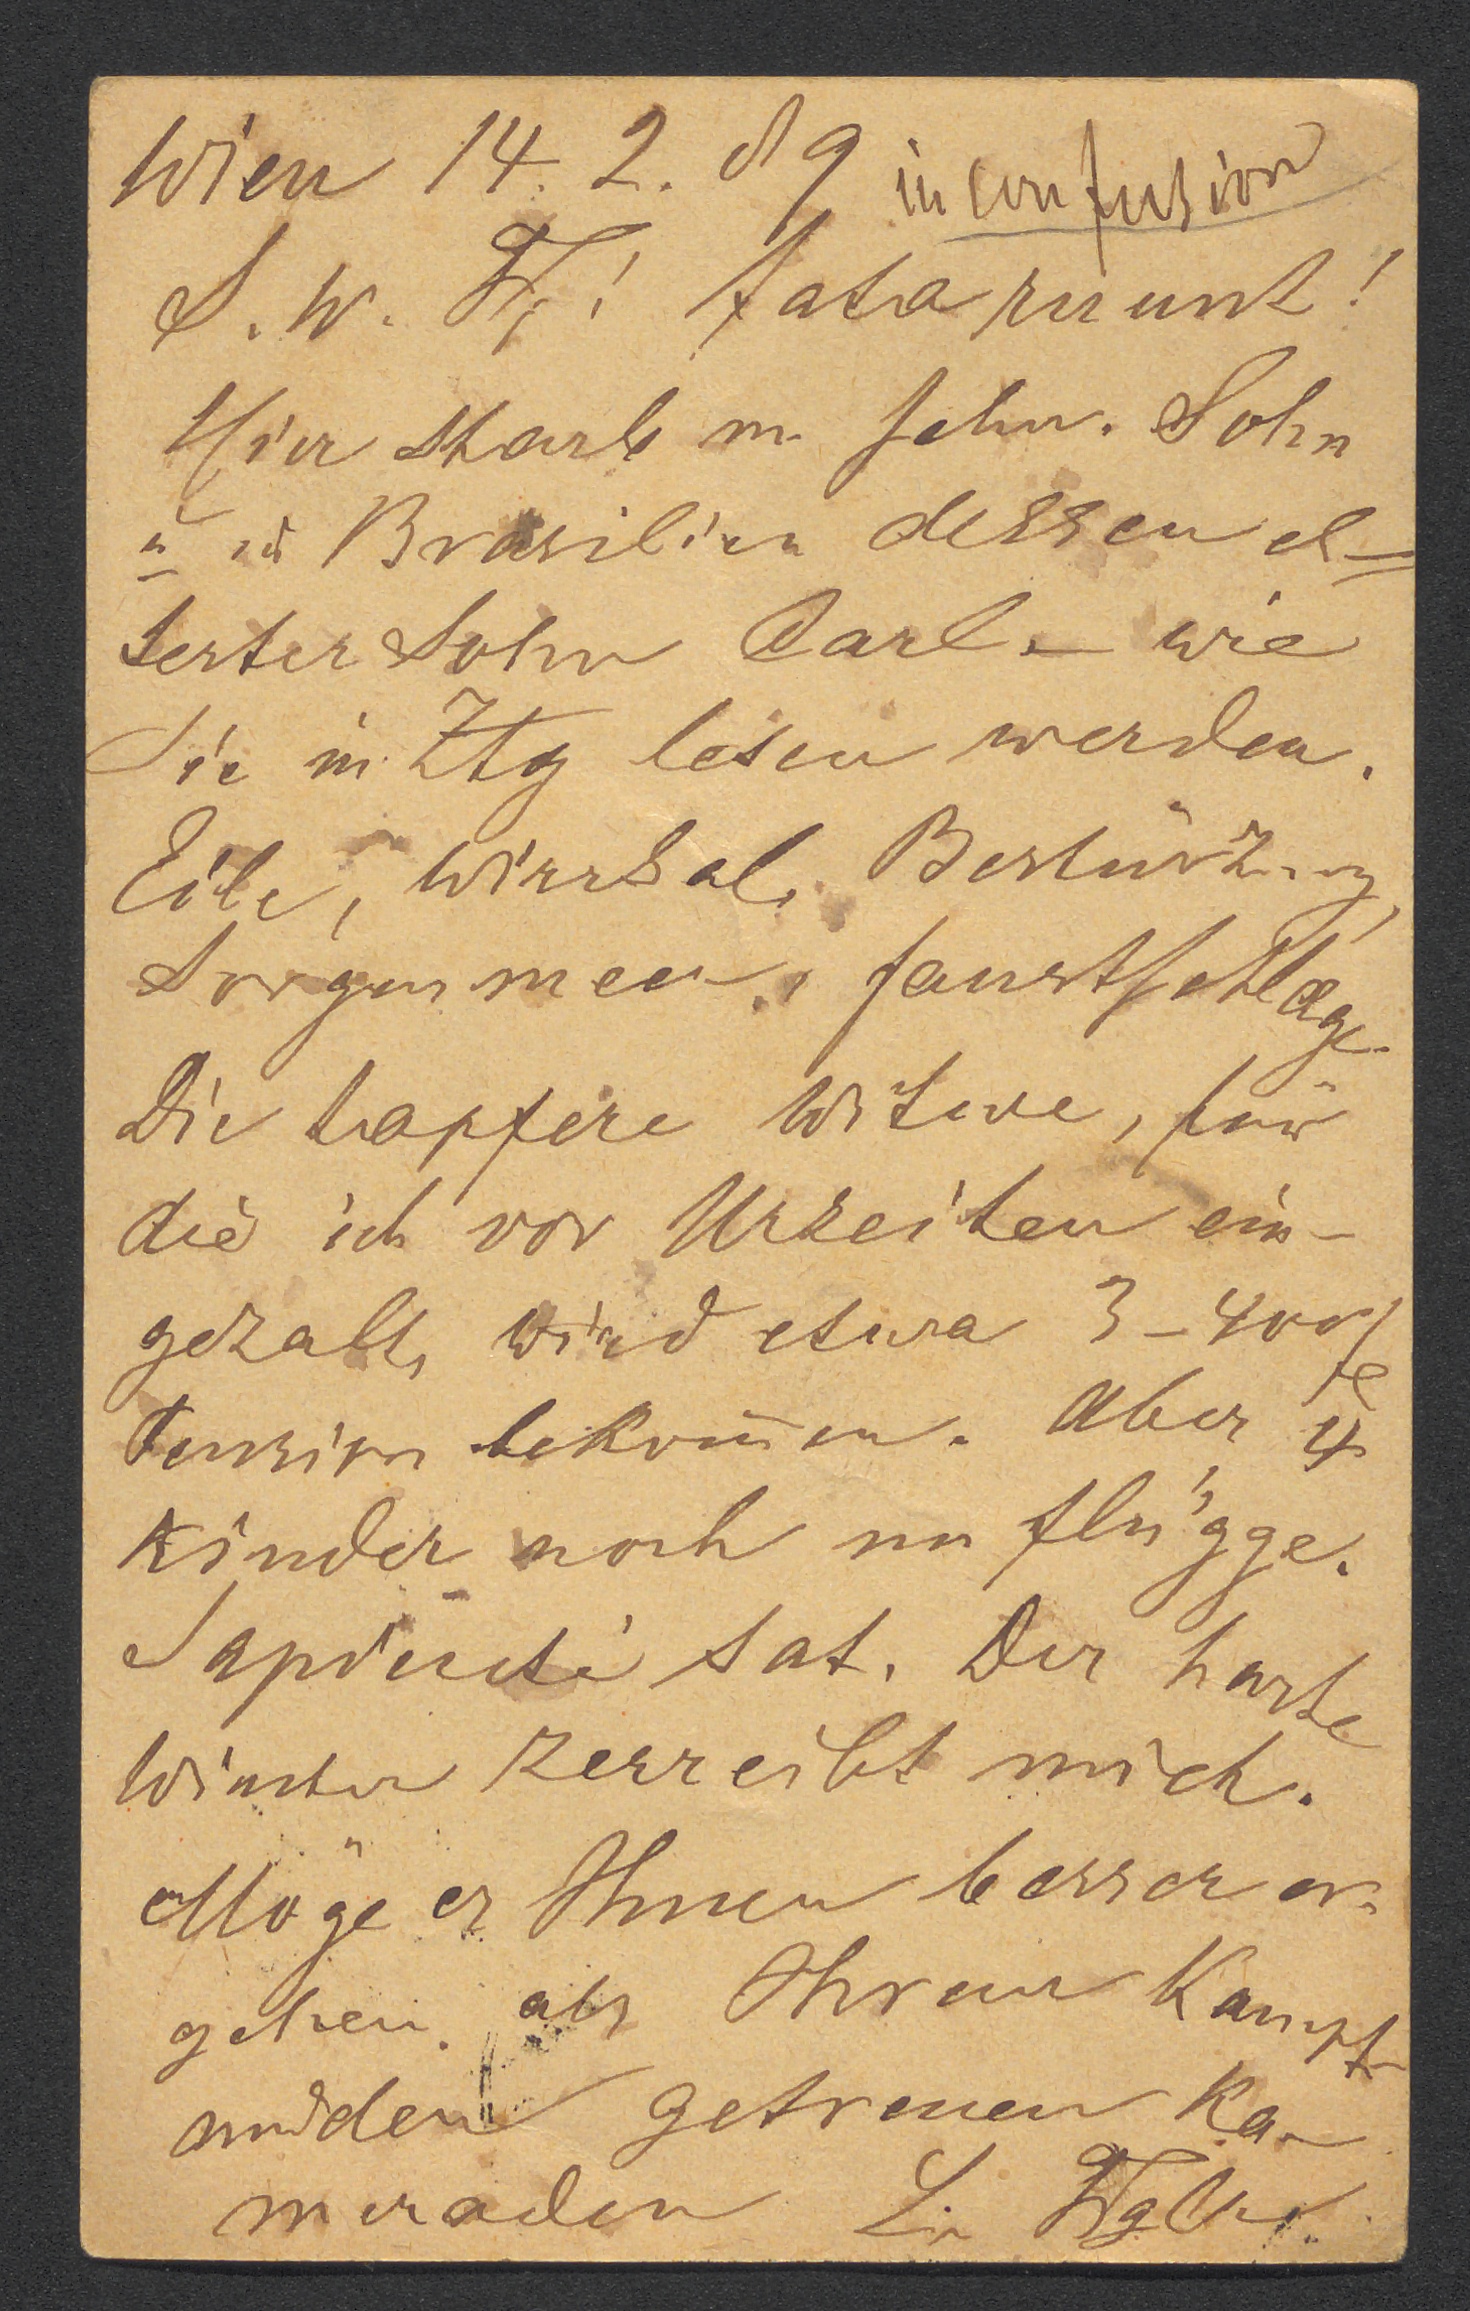 Wien 14. 2. 89 in confusion
S. W. F! Fata ruunt!
Hier starb m Schw. Sohn
u in Brasilien dessen äl=
tester Sohn Carl – wie
Sie in Ztg lesen werden.
Eile, Wirrsal, Bestürzung,
Sorgenmeer, Faustschläge.
Die tapfere Witwe, für
die ich vor Urzeiten ein-
gezalt, wird etwa 3–400 f
Pension bekom̅en. Aber 4
Kinder noch unflügge.
Sapienti sat. Der harte
Winter zerreibt mich.
Möge es Ihnen besser er-
gehen, als Ihrem Kampf-
müden getreuen Ka-
meraden L.